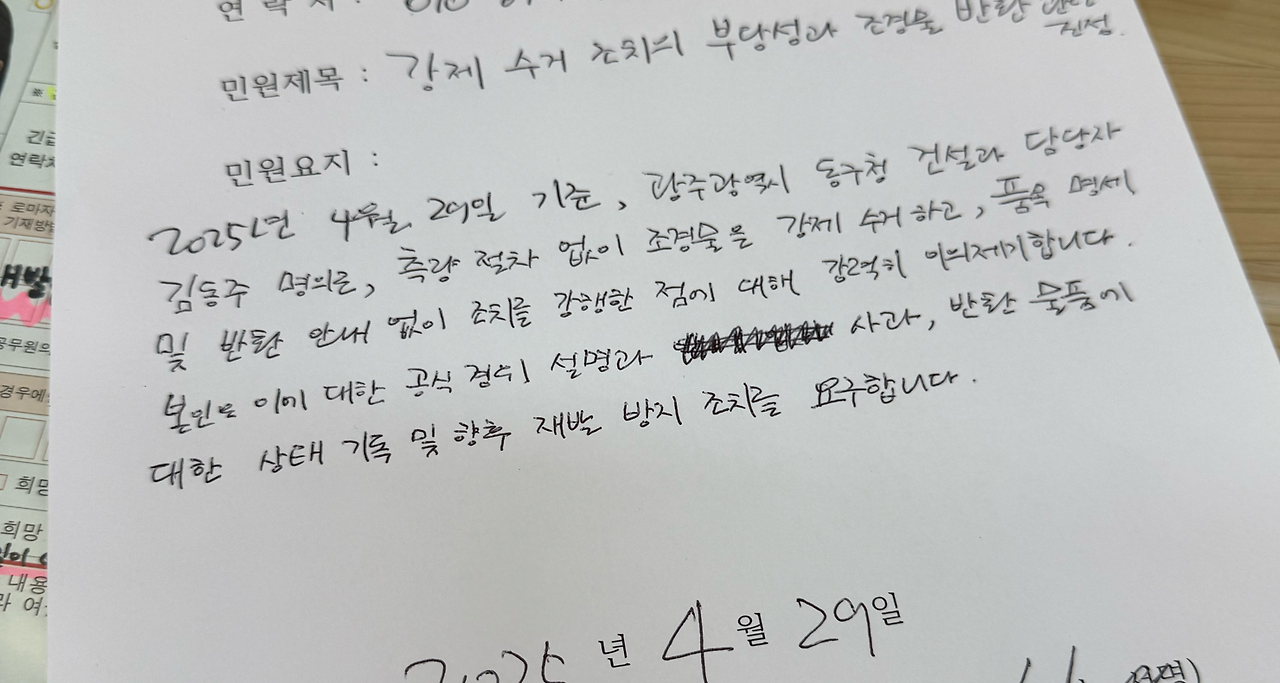 연락처 : 010
민원제목 : 강제 수거 조치의 부당성과 조경물 반환
진정.
민원요지 :
2025년 4월 29일 기준, 광주광역시 동구청 건설과 담당자
김동주 명의로, 측량 절차 없이 조경물을 강제 수거하고, 품목 명세
및 반환 안내 없이 조치를 강행한 점에 대해 강력히 이의제기합니다.
본인은 이에 대한 공식 경위 설명과 사과, 반환 물품에
대한 상태 기록 및 향후 재발 방지 조치를 요구합니다.
2025년 4월 29일
긴급
연락처
로마자
기재방법
공무원의
경우에
희망
희망
내용